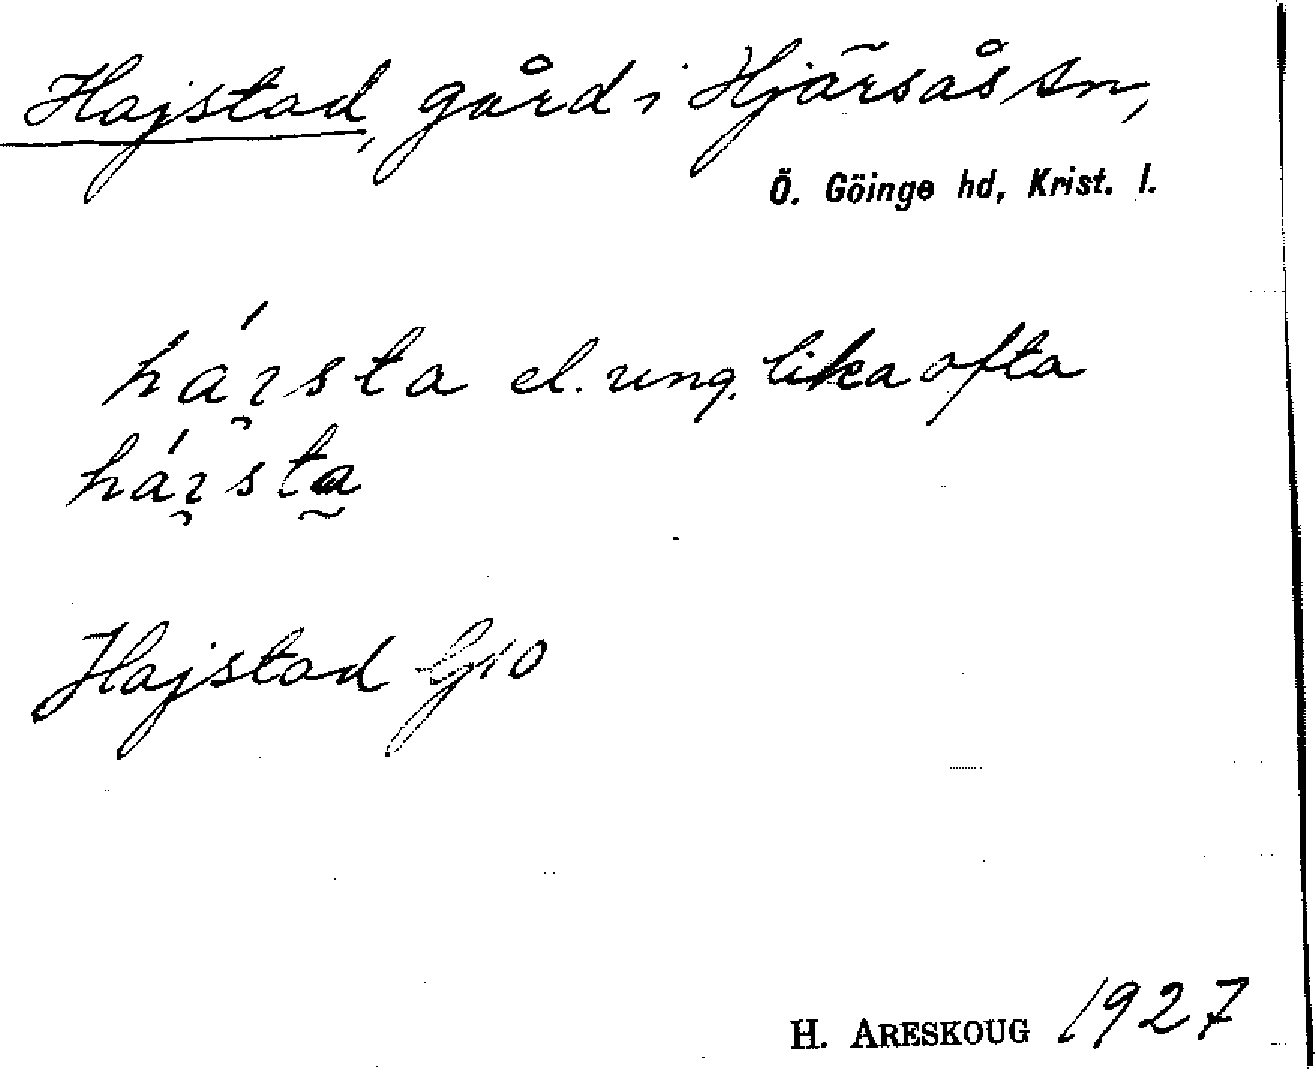 Hajstad, gård i Hjärsås sn,
Ö. Göinge hd, Krist. l.
háꝛ̯sta el. ung. lika ofta
háꝛ̯sta̰
Hajstad GK10
H. ARESKOUG 1927